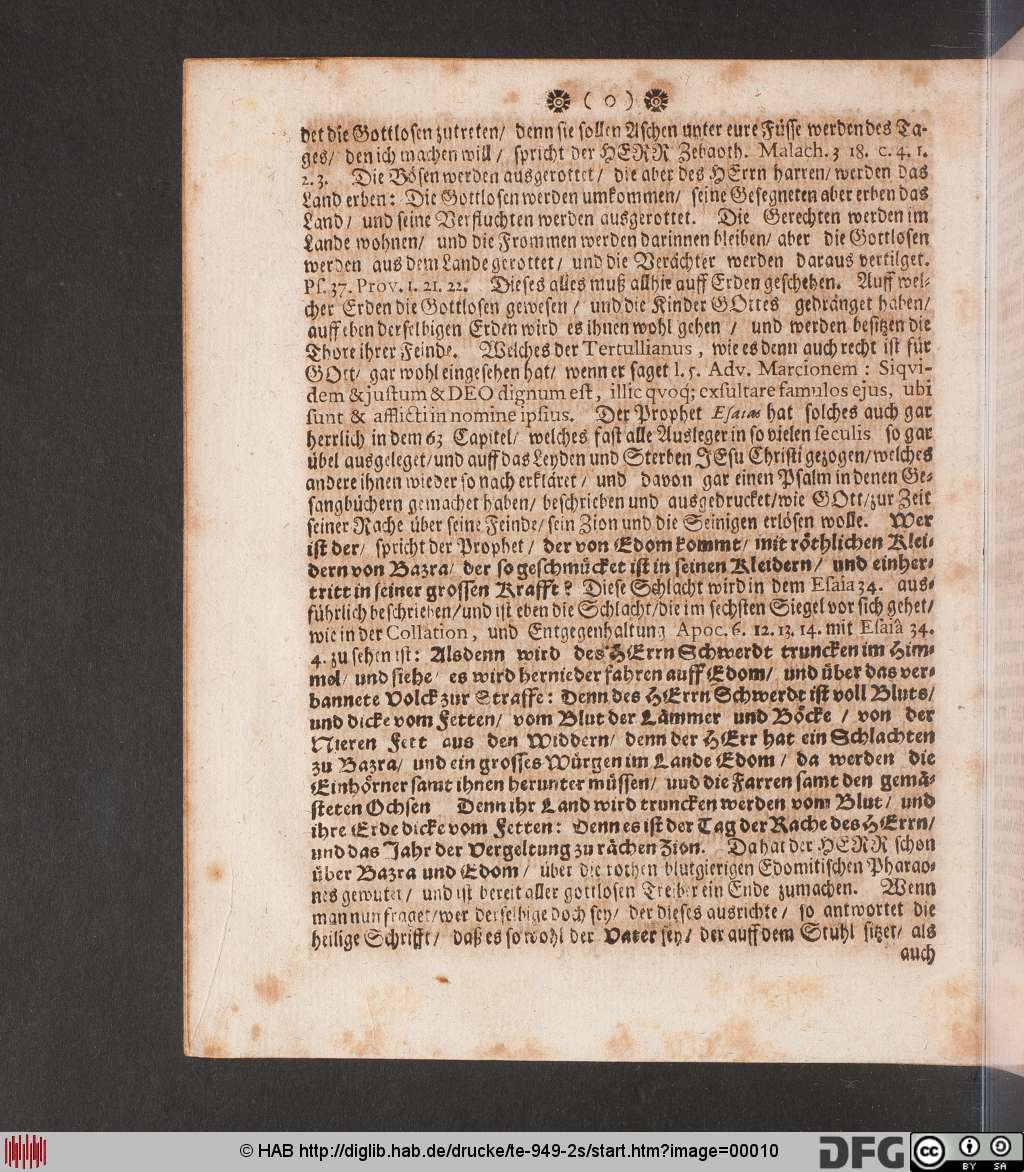 ( o )
det die Gottlosen zutreten/ denn sie sollen Aschen unter eure Füsse werden des Ta-
ges/ den ich machen will/ spricht der HERR Zebaoth. Malach. 3 18. c. 4. 1.
2. 3. Die Bösen werden ausgerottet/ die aber des HErrn harren/ werden das
Land erben: Die Gottlosen werden umkommen/ seine Gesegneten aber erben das
Land/ und seine Verfluchten werden ausgerottet. Die Gerechten werden im
Lande wohnen/ und die Frommen werden darinnen bleiben/ aber die Gottlosen
werden aus dem Lande gerottet/ und die Verächter werden daraus vertilget.
Ps. 37. Prov. 1. 21. 22. Dieses alles muß allhie auff Erden geschehen. Auff wel-
cher Erden die Gottlosen gewesen/ und die Kinder GOttes gedränget haben/
auff eben derselbigen Erden wird es ihnen wohl gehen/ und werden besitzen die
Thore ihrer Feinde. Welches der Tertullianus, wie es denn auch recht ist für
GOtt/ gar wohl eingesehen hat/ wenn er saget l. 5. Adv. Marcionem: Siqvi-
dem & justum & DEO dignum est, illic qvoq; exsultare famulos ejus, ubi
sunt & afflicti in nomine ipsius. Der Prophet Esaias hat solches auch gar
herrlich in dem 63 Capitel/ welches fast alle Ausleger in so vielen seculis so gar
übel ausgeleget/ und auff das Leyden und Sterben JEsu Christi gezogen/ welches
andere ihnen wieder so nach erkläret/ und davon gar einen Psalm in denen Ge-
sangbüchern gemachet haben/ beschrieben und ausgedrucket/ wie GOtt/ zur Zeit
seiner Rache über seine Feinde/ sein Zion und die Seinigen erlösen wolle. Wer
ist der/ spricht der Prophet/ der von Edom kommt/ mit röthlichen Klei-
dern von Bazra/ der so geschmücket ist in seinen Kleidern/ und einher-
tritt in seiner grossen Krafft? Diese Schlacht wird in dem Esaia 34. aus-
führlich beschrieben/ und ist eben die Schlacht/ die im sechsten Siegel vor sich gehet/
wie in der Collation, und Entgegenhaltung Apoc. 6. 12. 13. 14. mit Esaiâ 34.
4. zu sehen ist: Alsdenn wird des HErrn Schwerdt truncken im Him-
mel/ und siehe/ es wird hernieder fahren auff Edom/ und über das ver-
bannete Volck zur Straffe: Denn des HErrn Schwerdt ist voll Bluts/
und dicke vom Fetten/ vom Blut der Lämmer und Böcke/ von der
Nieren Fett aus den Widdern/ denn der HErr hat ein Schlachten
zu Bazra/ und ein grosses Würgen im Lande Edom/ da werden die
Einhörner samt ihnen herunter müssen/ uud die Farren samt den gemä-
steten Ochsen Denn ihr Land wird truncken werden vom Blut/ und
ihre Erde dicke vom Fetten: Denn es ist der Tag der Rache des HErrn/
und das Jahr der Vergeltung zu rächen Zion. Da hat der HERR schon
über Bazra und Edom/ über die rothen blutgierigen Edomitischen Pharao-
nes gewütet/ und ist bereit aller gottlosen Treiber ein Ende zumachen. Wenn
man nun fraget/ wer derselbige doch sey/ der dieses ausrichte/ so antwortet die
heilige Schrifft/ daß es so wohl der Vater sey/ der auff dem Stuhl sitzet/ als
auch
© HAB http://diglib.hab.de/drucke/te-949-2s/start.htm?image=00010
DFG
cc
BY SA